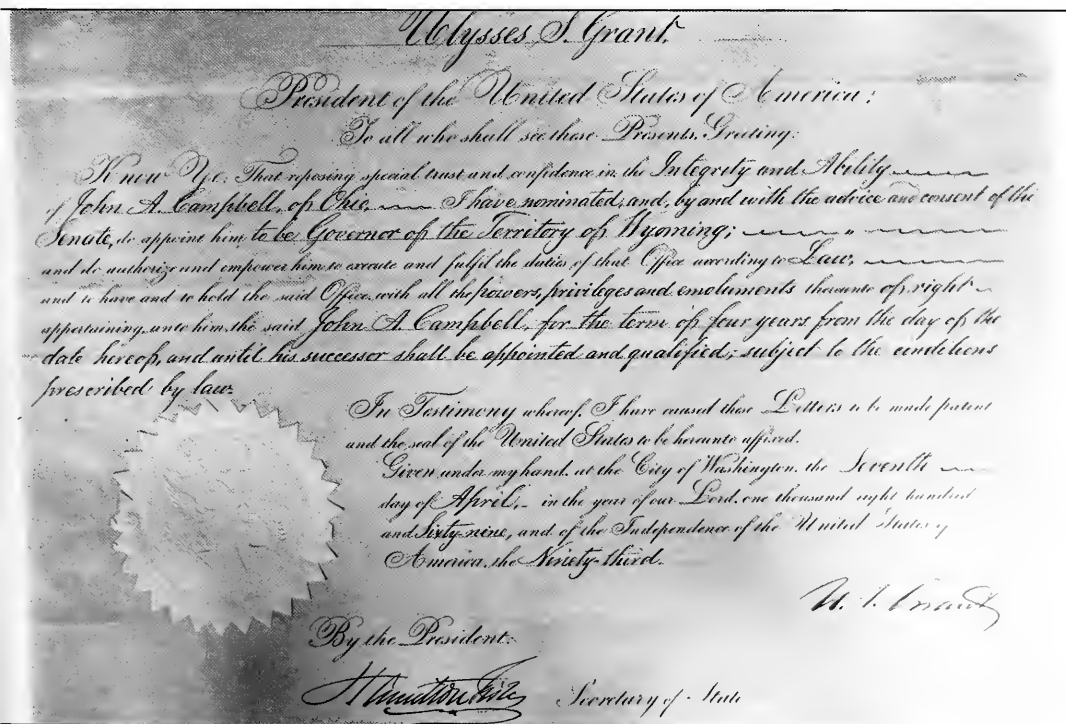 Ulysses S. Grant.
President of the United States of America:
To all who shall see these Presents, Greeting:
Know Ye: That reposing special trust and confidence in the Integrity and Ability
of John A. Campbell, of Ohio, I have nominated, and, by and with the advice and consent of the
Senate, do appoint him to be Governor of the Territory of Wyoming;
and do authorize and empower him to execute and fulfil the duties of that Office according to Law,
and to have and to hold the said Office, with all the powers, privileges and emoluments thereunto of right
appertaining unto him, the said John A. Campbell, for the term of four years from the day of the
date hereof, and until his successor shall be appointed and qualified; subject to the conditions
prescribed by law.
In Testimony whereof, I have caused these Letters to be made patent
and the seal of the United States to be hereunto affixed.
Given under my hand, at the City of Washington, the Seventh
day of April, in the year of our Lord, one thousand eight hundred
and Sixty-nine, and of the Independence of the United States of
America, the Ninety-third.
U. S. Grant
By the President:
Hamilton Fish
Secretary of State